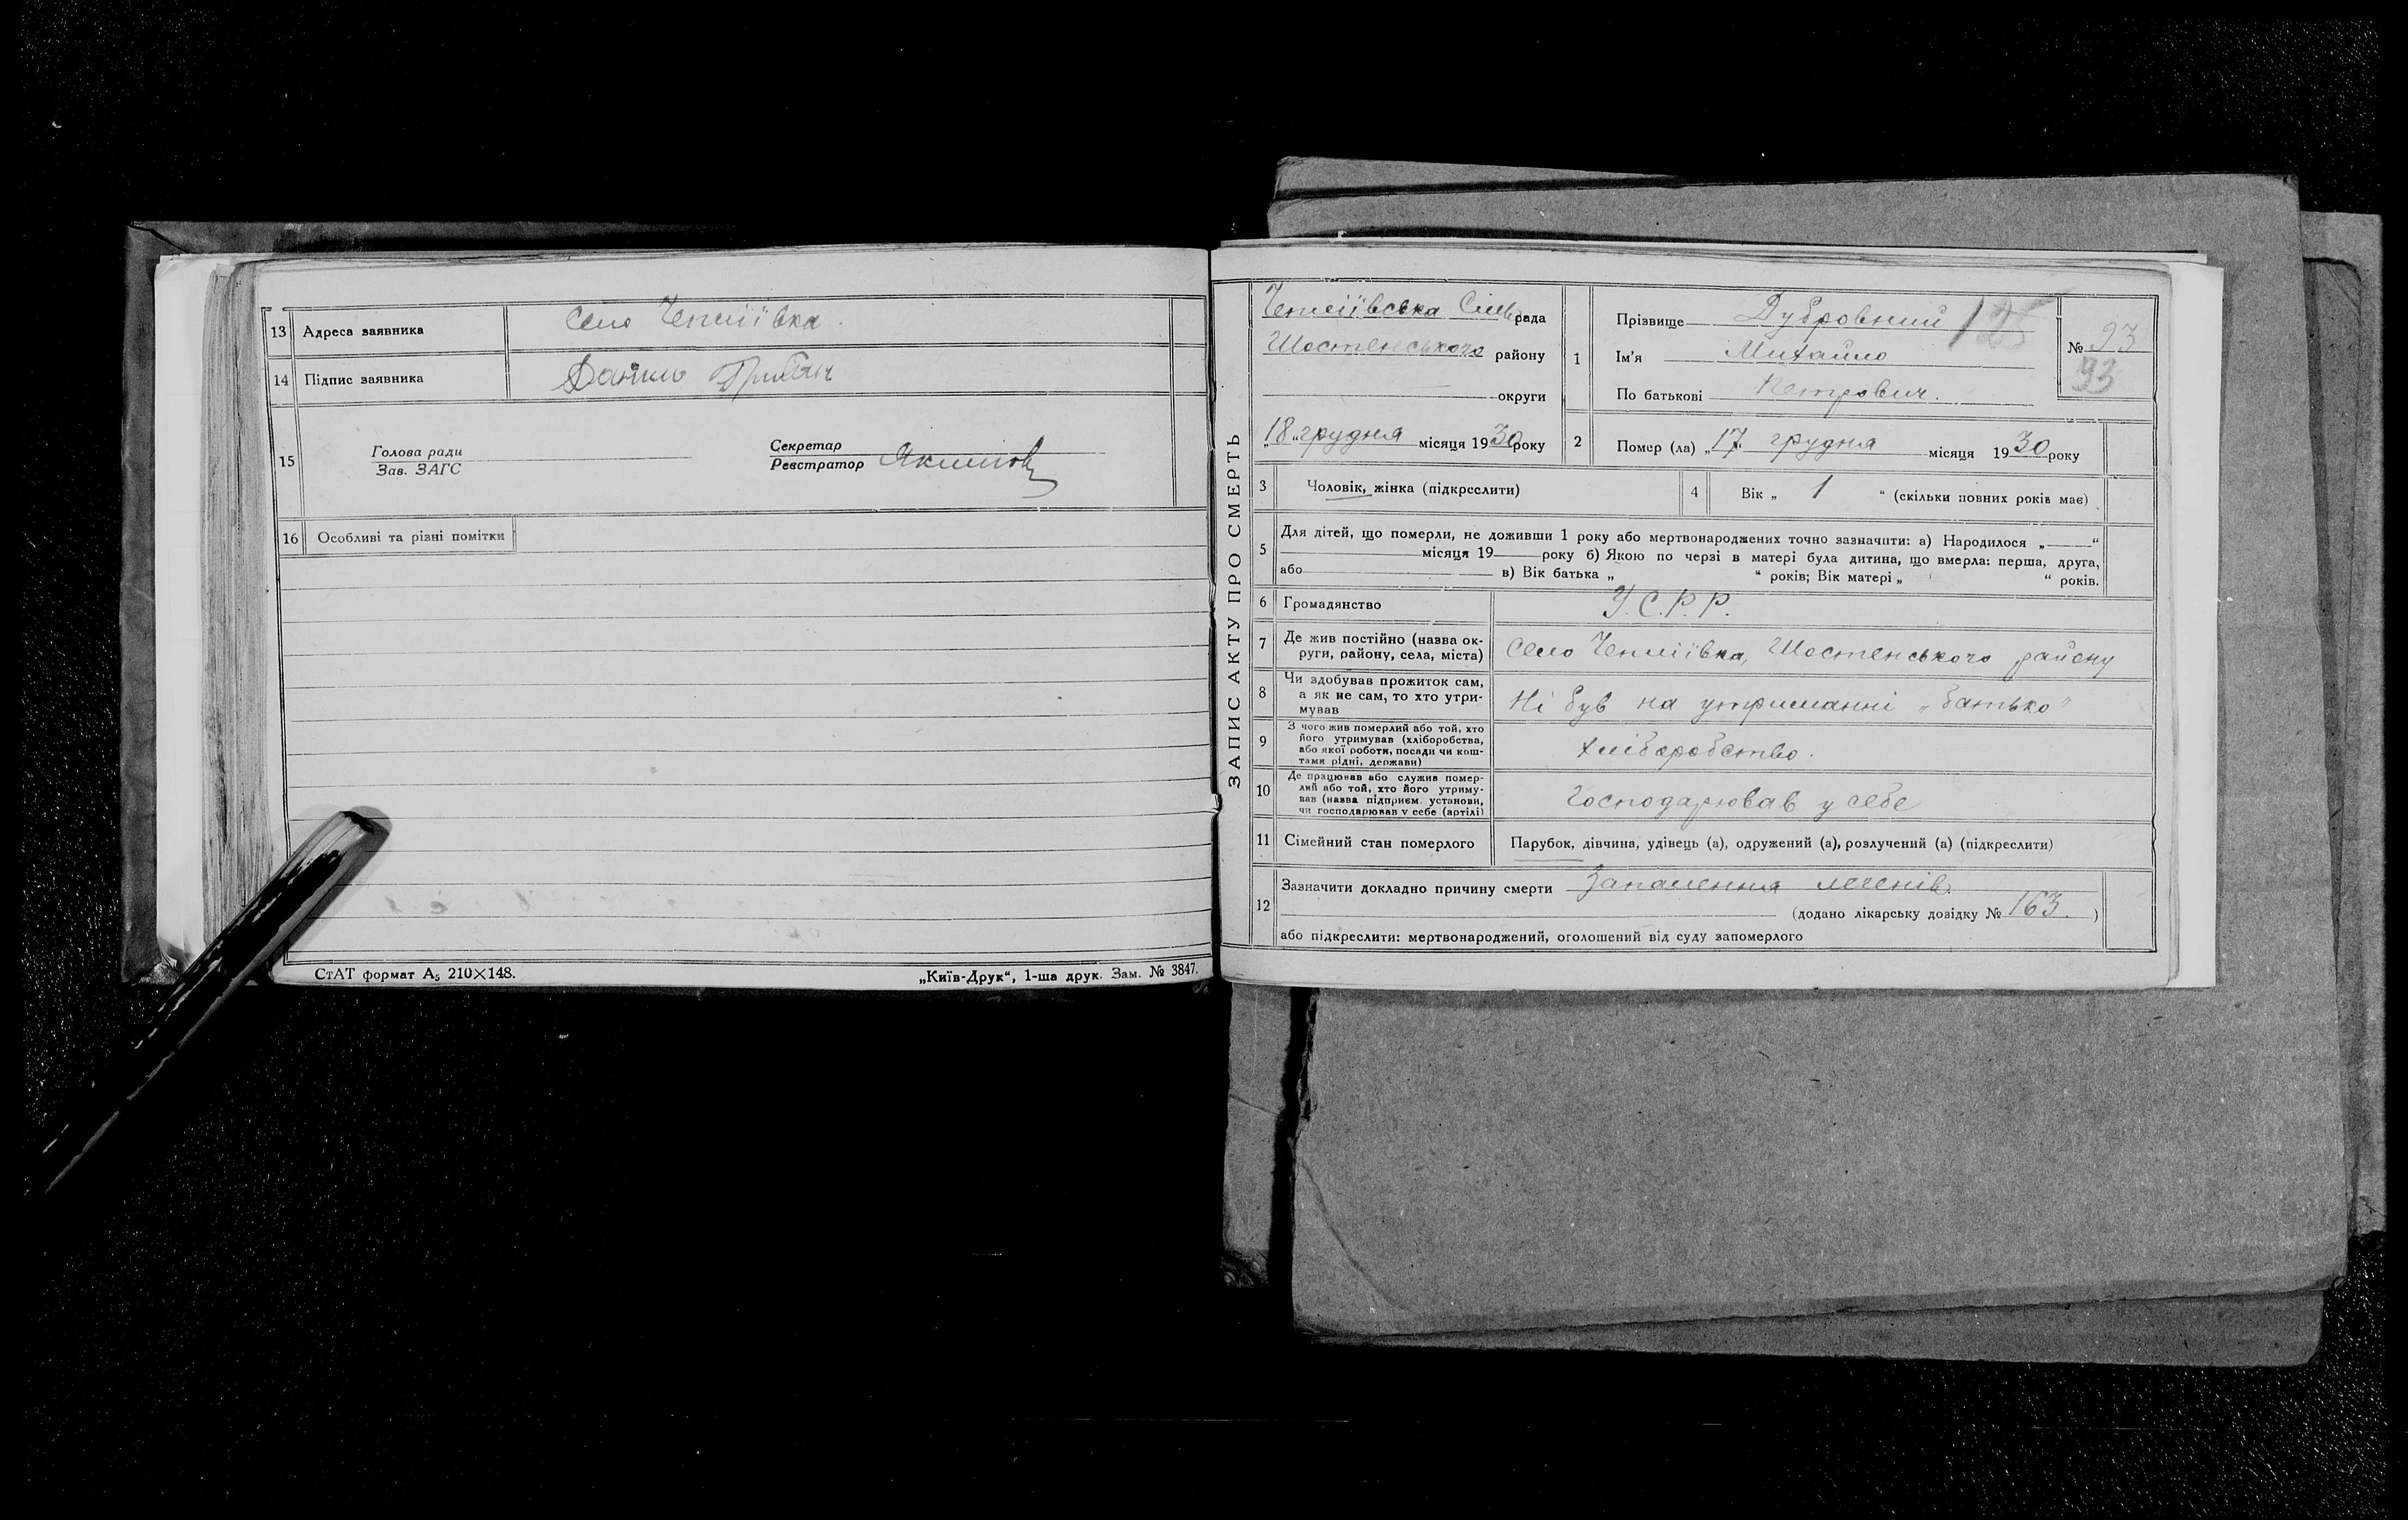 13 Адреса заявника Село Чепліївка.
14 Підпис заявника Данило
15 Голова ради
Зав. ЗАГС
Секретар
Реєстратор
16 Особливі та різні помітки
СтАТ формат А₅ 210×148.
„Київ-Друк“, 1-ша друк. Зам. № 3847.
ЗАПИС АКТУ ПРО СМЕРТЬ
Чепліївська Сільрада
Шостенського району
округи
„18“ грудня місяця 1930 року
1 Прізвище Дубровний 125
Ім’я Михайло
По батькові Петрович.
№ 93
93
2 Помер (ла) „17“ грудня місяця 1930 року
3 Чоловік, жінка (підкреслити)
4 Вік „ 1 “ (скільки повних років має)
5 Для дітей, що померли, не доживши 1 року або мертвонароджених точно зазначити: а) Народилося „ “
місяця 19 року б) Якою по черзі в матері була дитина, що вмерла: перша, друга,
або в) Вік батька „ “ років; Вік матері „ “ років.
6 Громадянство У.С.Р.Р.
7 Де жив постійно (назва ок-
руги, району, села, міста) Село Чепліївка, Шостенського району
8 Чи здобував прожиток сам,
а як не сам, то хто утри-
мував Ні був на утриманні „батько“
9 З чого жив померлий або той, хто
його утримував (хліборобства,
або якої роботи, посади чи кош-
тами рідні, держави) Хліборобство.
10 Де працював або служив помер-
лий або той, хто його утриму-
вав (назва підприєм. установи,
чи господарював у себе (артілі) Господарював у себе
11 Сімейний стан померлого Парубок, дівчина, удівець (а), одружений (а), розлучений (а) (підкреслити)
12 Зазначити докладно причину смерти Запалення легенів.
(додано лікарську довідку № 163. )
або підкреслити: мертвонароджений, оголошений від суду запомерлого